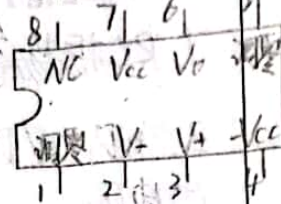 8 7 6
NC Vcc Vo 调零
调零 V- V+ -Vcc
1 2 3 4